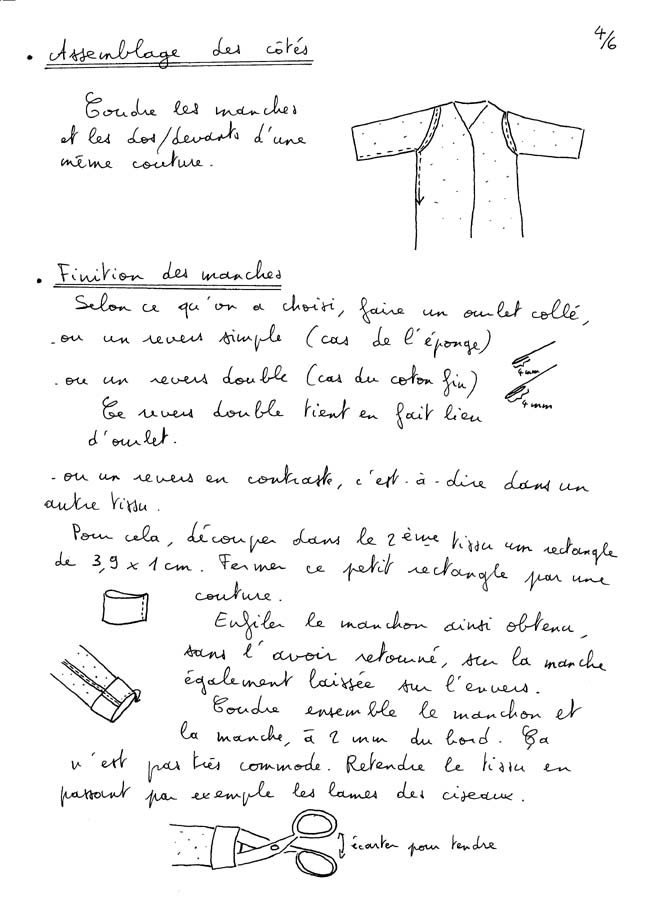 4/6
. Assemblage des côtés
Coudre les manches
et les dos/devants d'une
même couture.
. Finition des manches
Selon ce qu'on a choisi, faire un ourlet collé,
- ou un revers simple (cas de l'éponge)
4 mm
- ou un revers double (cas du coton fin)
4 mm
Ce revers double tient en fait lieu
d'ourlet.
- ou un revers en contraste, c'est-à-dire dans un
autre tissu.
Pour cela, découper dans le 2ème tissu un rectangle
de 3,9 x 1 cm. Fermer ce petit rectangle par une
couture.
Enfiler le manchon ainsi obtenu,
sans l'avoir retourné, sur la manche
également laissée sur l'envers.
Coudre ensemble le manchon et
la manche, à 2 mm du bord. Ça
n'est pas très commode. Retendre le tissu en
passant par exemple les lames des ciseaux.
écarter pour tendre